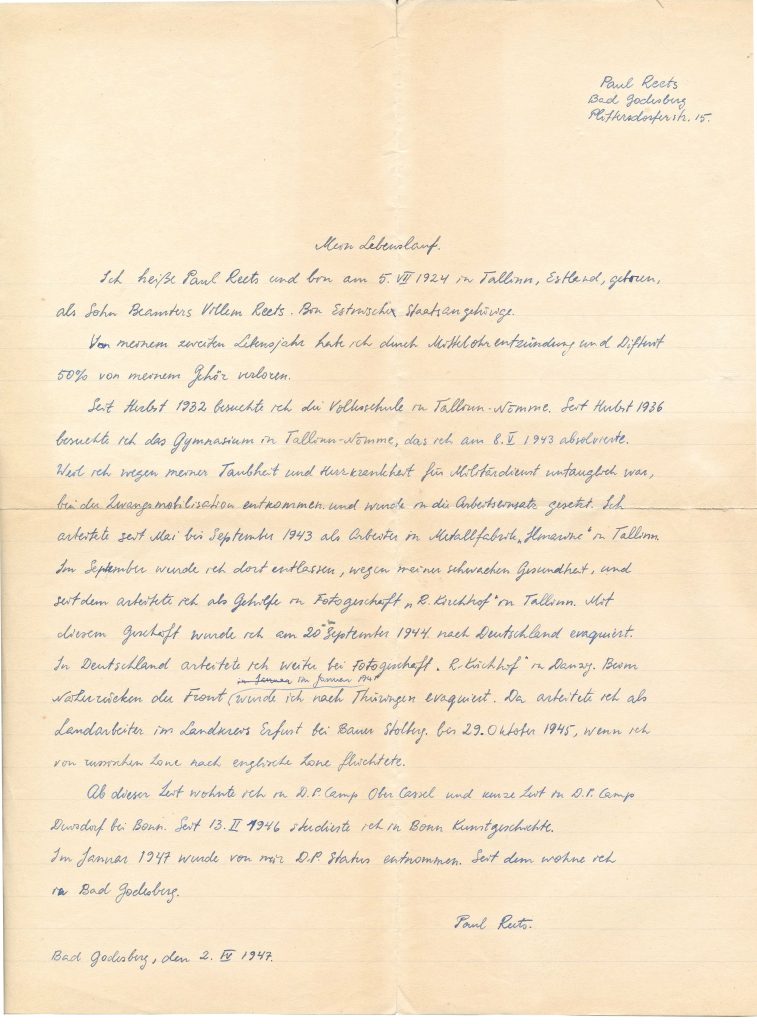 Paul Reets
Bad Godesberg
Plittersdorferstr. 15.
Mein Lebenslauf.
Ich heiße Paul Reets und bin am 5. VII 1924 in Tallinn, Estland, geboren,
als Sohn Beamters Villem Reets. Bin Estnische Staatsangehörige.
Von meinem zweiten Lebensjahr habe ich durch Mittelohrentzündung und Difterit
50% von meinem Gehör verloren.
Seit Herbst 1932 besuchte ich die Volksschule in Tallinn-Nömme. Seit Herbst 1936
besuchte ich das Gymnasium in Tallinn-Nömme, das ich am 8. V 1943 absolvierte.
Weil ich wegen meiner Taubheit und Herzkrankheit für Militärdienst untauglich war,
bin der Zwangsmobilisation entkommen und wurde in die Arbeitseinsatz gesetzt. Ich
arbeitete seit Mai bis September 1943 als Arbeiter in Metallfabrik „Ilmarine" in Tallinn.
Im September wurde ich dort entlassen, wegen meiner schwachen Gesundheit, und
seitdem arbeitete ich als Gehilfe in Fotogeschäft „R. Kirchhof" in Tallinn. Mit
diesem Geschäft wurde ich am 20 September 1944 nach Deutschland evaquiert.
In Deutschland arbeitete ich weiter bei Fotogeschäft „R. Kirchhof" in Danzig. Beim
im Januar
Näherrücken der Front, wurde ich nach Thüringen evaquiert. Da arbeitete ich als
Landarbeiter im Landkreis Erfurt bei Bauer Stolberg. bis 29. Oktober 1945, wenn ich
von russischen Zone nach englische Zone flüchtete.
Ab dieser Zeit wohnte ich in D.P. Camp Ober Cassel und kurze Zeit in D.P. Camp
Duisdorf bei Bonn. Seit 13. II 1946 studierte ich in Bonn Kunstgeschichte.
Im Januar 1947 wurde von mir D.P. Status entnommen. Seit dem wohne ich
in Bad Godesberg.
Paul Reets.
Bad Godesberg, den 2. IV 1947.